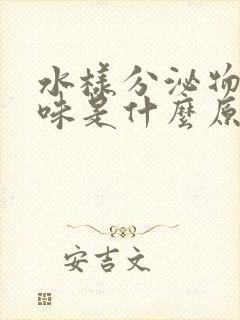 水樣分泌物
味是什麼原
安吉文